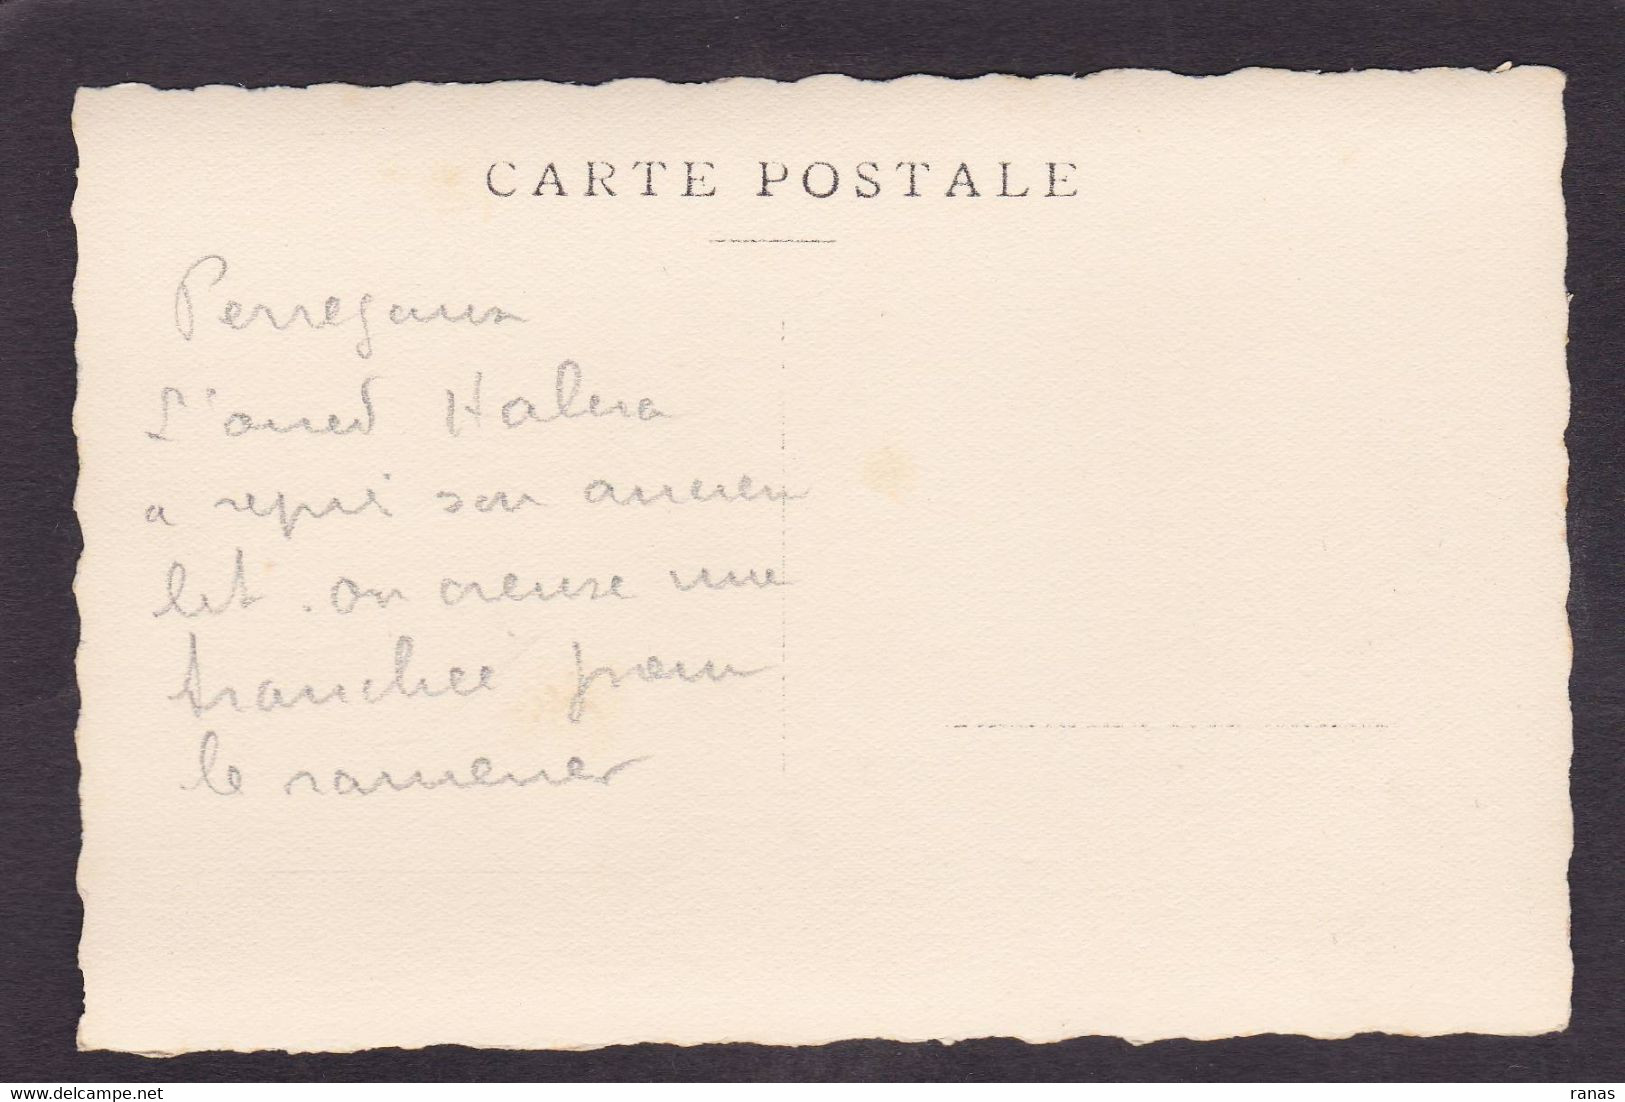 CARTE POSTALE
Perregaux
L'oued Habra
a repri son ancien
lit. on creuse une
tranchée pour
le ramener
www.delcampe.net
ranas